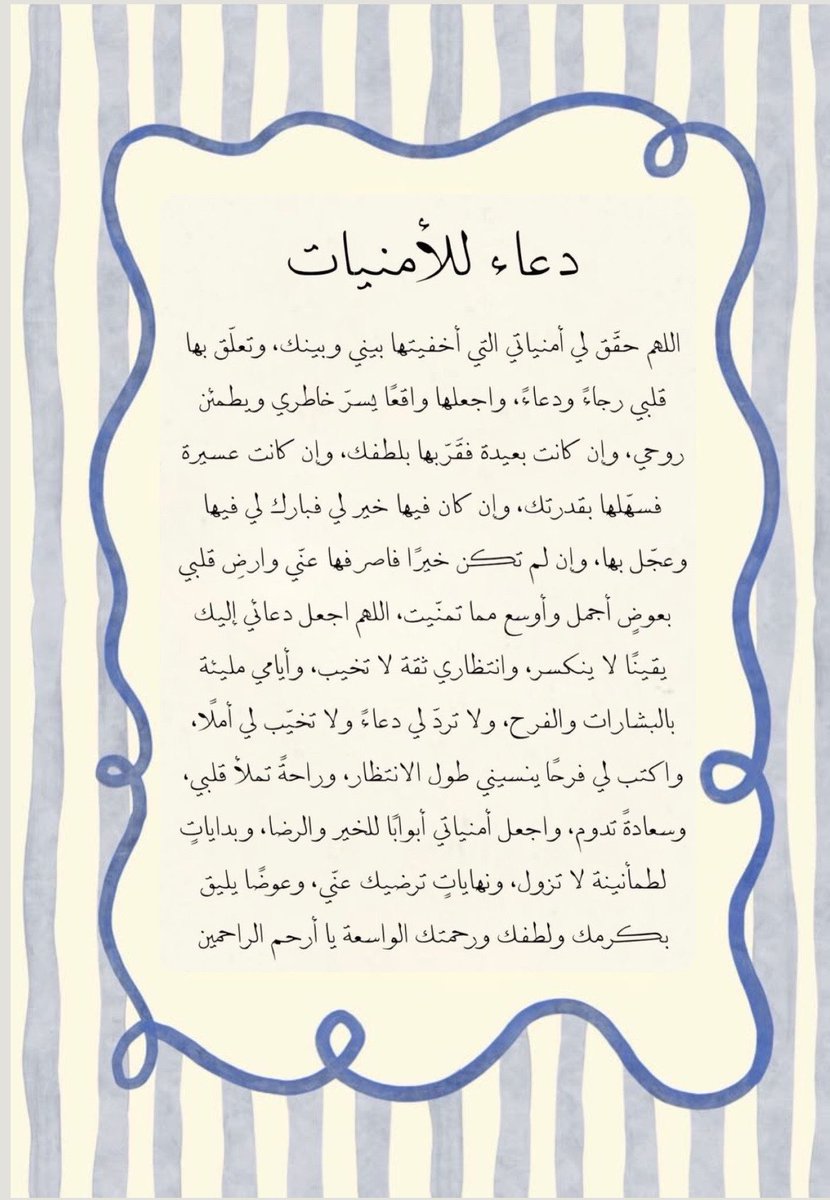 دعاء للأمنيات
اللهم حقَّق لي أمنياتي التي أخفيتها بيني وبينك، وتعلَّق بها
قلبي رجاءً ودعاءً، واجعلها واقعًا يسرّ خاطري ويطمئن
روحي، وإن كانت بعيدة فقَرّبها بلطفك، وإن كانت عسيرة
فسهّلها بقدرتك، وإن كان فيها خير لي فبارك لي فيها
وعجّل بها، وإن لم تكن خيرًا فاصرفها عنّي وارضِ قلبي
بعوضٍ أجمل وأوسع مما تمنّيت، اللهم اجعل دعائي إليك
يقينًا لا ينكسر، وانتظاري ثقة لا تخيب، وأيامي مليئة
بالبشارات والفرح، ولا تردّ لي دعاءً ولا تخيّب لي أملًا،
واكتب لي فرحًا ينسيني طول الانتظار، وراحةً تملأ قلبي،
وسعادةً تدوم، واجعل أمنياتي أبوابًا للخير والرضا، وبداياتٍ
لطمأنينة لا تزول، ونهاياتٍ ترضيك عنّي، وعوضًا يليق
بكرمك ولطفك ورحمتك الواسعة يا أرحم الراحمين